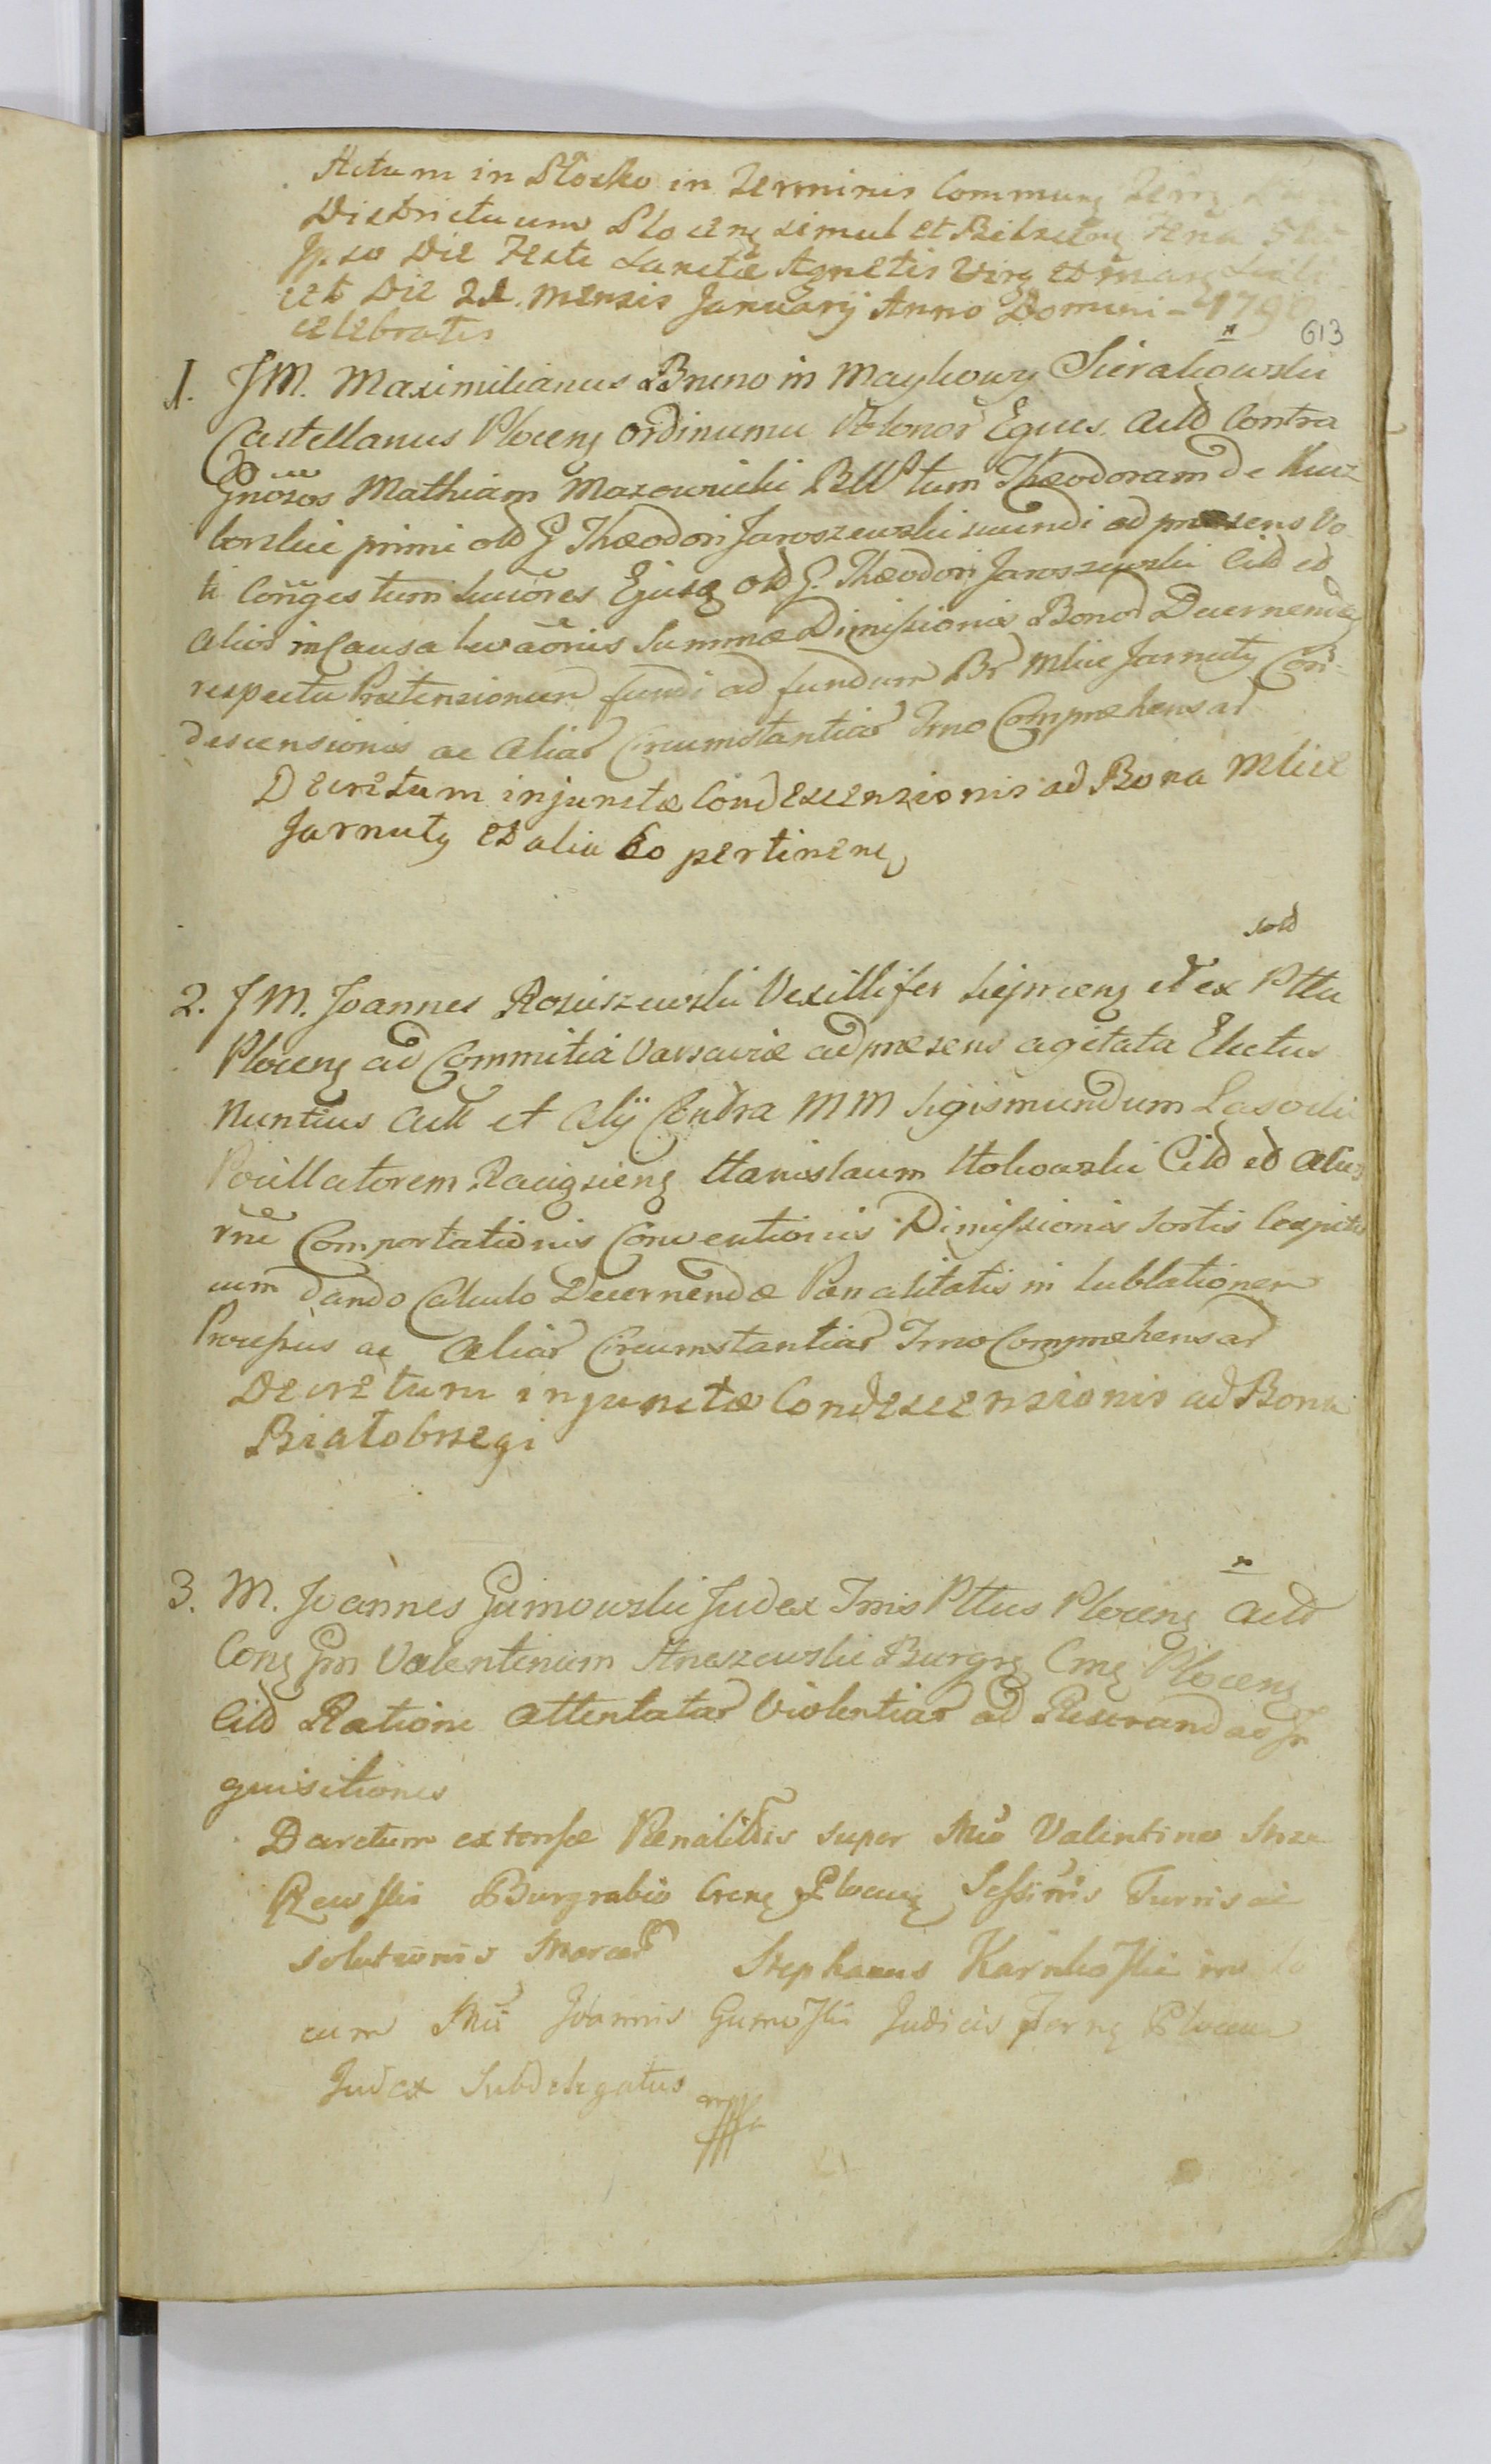 Actum in Płocko in Terminis Commung Terrg
Districtuum Ploceng simul et Bielscens
Ipso Die Festi Sanctæ Agnetis Virg et Marg
cet Die 21. Mensis Januarij Anno Domini - 1790
celebratis
613
1. JM. Maximilianus Bruno in Maykowy Sierakowski
Castellanus Plocens Ordinumu Polonor Eques Actd Contra
Gnosos Mathiam Mazowiecki BWP tum Theodoram de
borskie primi old G Theodori Jaroszewski secundi ad præsens Vo
ti Conges tum Succores Ejusq old G. Theodori Jaroszewski Citd et
Alios in Causa levaonis Summæ Dimissionis Bonor Decernendæ
respectu Prætensionum fundi ad fundum Br Mlice Jarnuty Con-
descensionis ac Aliar Circumstantiar Trno Compræhensar
Decretum injunctæ Condescensionis ad Bona Mlice
Jarnuty et alia Eo pertineng
sold
2. JM. Joannes Rosciszewski Vexillifer Sieprceng et ex Pttu
Ploceng ad Commitia Varsaviæ ad præsens agitata Electus
Nuntius Actt et Alij Contra MM Sigismundum Lasocki
Pocillatorem Raciązieng Stanislaum Citd et Alios
rne Comportationis Conventionis Dimissionis Sortis Cespite
cum dando Calculo Decernendæ Pœnalitatis in Sublationem
Processus ac Aliar Circumstantiar Trno Compræhensar
Decretum injunctæ Condescensionis ad Bona
Białobrzegi
3. M. Joannes Gumowski Judex Trris Pttus Ploceng Actd
Cong Gm Valentinum Strzeszewski Burgrg Crng Ploceng
Citd Ratione Attentatar Violentiar ad Reserandas In
quisitiones
Decretum extensæ Pœnalittis super Mco Valentino
Burgrabio Creng Ploceng Sessionis Turris ac
solutionis Marcar Stephanus Karnkoski in lo
cum Mci Joannis Gumoski Judicis Terrng Plocen
Judex Subdelegatus mppa